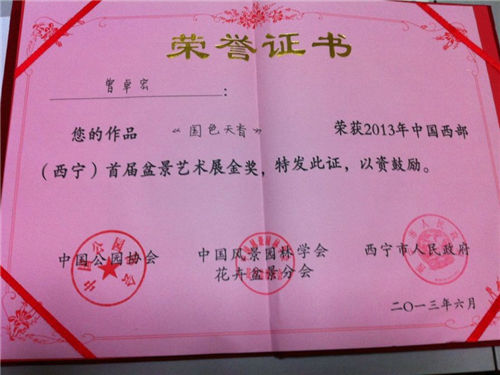 荣誉证书
曾卓宏：
您的作品 《国色天香》 荣获2013年中国西部
（西宁）首届盆景艺术展金奖，特发此证，以资鼓励。
中国公园协会 中国风景园林学会 西宁市人民政府
花卉盆景分会
二〇一三年六月